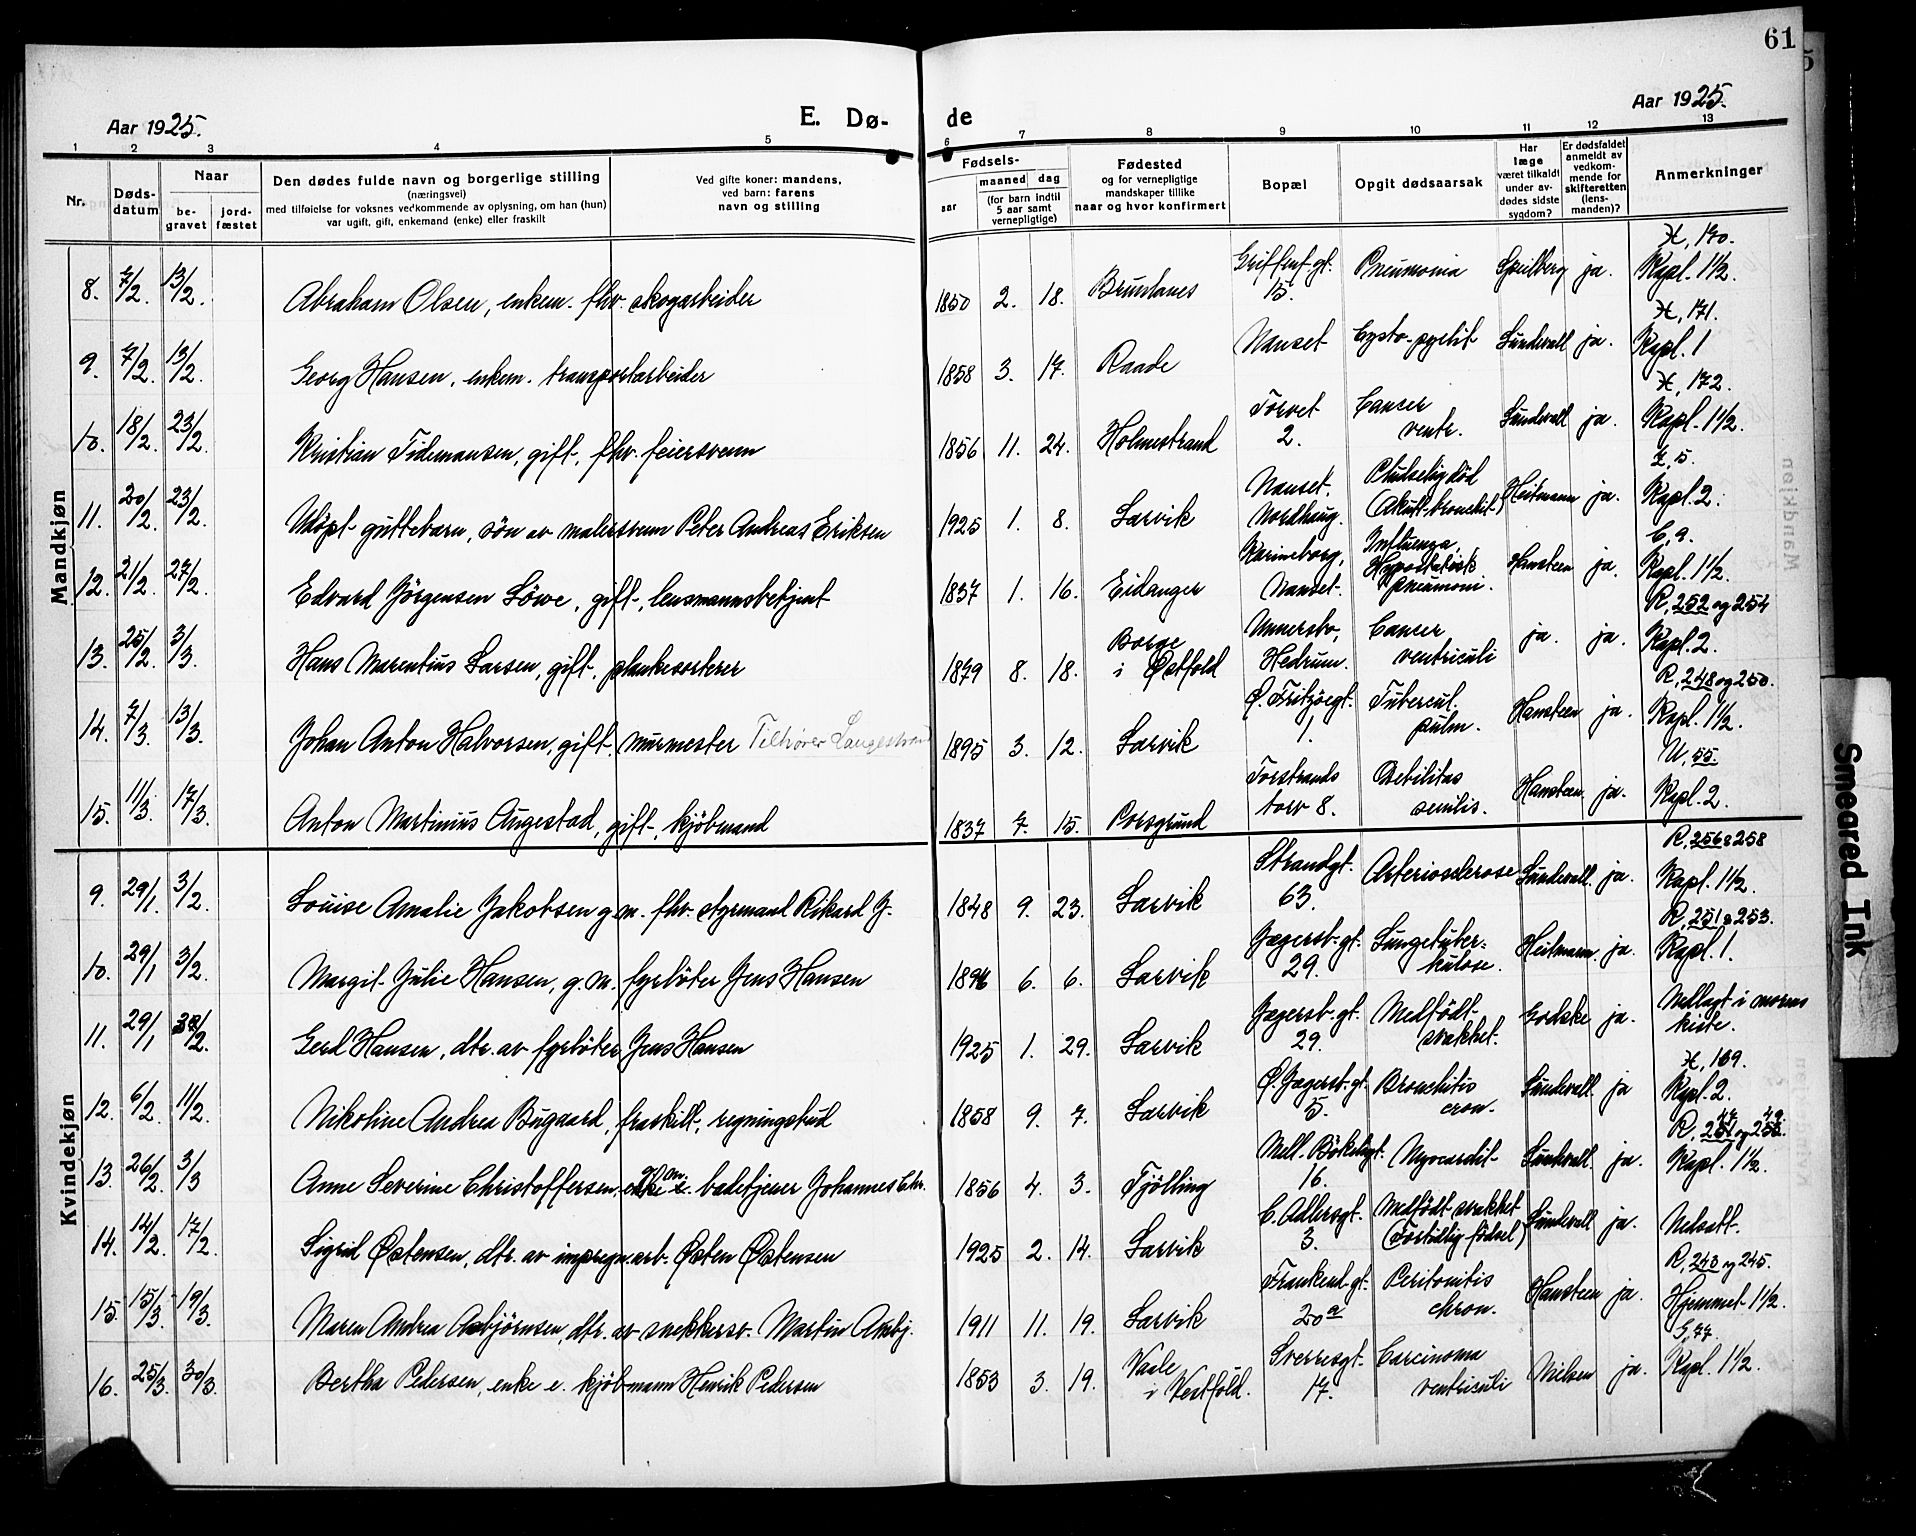 61
Aar 1925.
E. Dø-
de
Aar 1925.
1 2 3 4 5 6 7 8 9 10 11 12 13
Nr.
Døds-
datum
Naar
be-
gravet
jord-
fæstet
Den dødes fulde navn og borgerlige stilling
(næringsvei)
med tilføielse for voksnes vedkommende av oplysning, om han (hun)
var ugift, gift, enkemand (enke) eller fraskilt
Ved gifte koner: mandens,
ved barn: farens
navn og stilling
Fødsels-
aar
maaned
dag
(for barn indtil
5 aar samt
vernepligtige)
Fødested
og for vernepligtige
mandskaper tillike
naar og hvor konfirmert
Bopæl
Opgit dødsaarsak
Har
læge
været tilkaldt
under av-
dødes sidste
sygdom?
Er dødsfaldet
anmeldt av
vedkom-
mende for
skifteretten
(lens-
manden)?
Anmerkninger
Mandkjøn
8. 7/2. 13/2. Abraham Olsen, enkem. fhv. skogarbeider 1850 2. 18. Brunlanes Griffenf.gt. 15. Pneumonia Speilberg ja. H, 170. Kapl. 1 1/2.
9. 7/2. 13/2. Georg Hansen, enkem. transportarbeider 1858 3. 17. Raade Nanset Cysto-pyelit Sundevall ja. H, 171. Kapl. 1
10. 18/2. 23/2. Kristian Tidemansen, gift, fhv. feiersvenn 1856 11. 24. Holmestrand Torvet 2. Cancer ventr. Sundevall ja. H, 172. Kapl. 1 1/2.
11. 20/2. 23/2. Udøpt guttebarn, søn av malersvenn Peter Andreas Eriksen 1925 1. 8. Larvik Nanset. Nordhaug. Plutselig død (Akutt bronchit) Heitmann ja. Z, 5. Kapl. 2.
12. 21/2. 27/2. Edvard Jörgensen Löwe, gift, lensmannsbetjent 1837 1. 16. Eidanger Karineborg, Nanset. Influenza, Hypostatisk pneumoni. Hansteen ja. C, 9. Kapl. 1 1/2.
13. 25/2. 3/3. Hans Marentius Larsen, gift, plankesorterer 1879 8. 18. Borge i Østfold Unnersbo, Hedrum. Cancer ventriculi ja. ja. R, 252 og 254 Kapl. 2.
14. 7/3. 13/3. Johan Anton Halvorsen, gift, murmester Tilhører Langestrand 1895 3. 12. Larvik Ø. Fritzöegt. 1. Tubercul. pulm. Hansteen ja. R, 248 og 250. Kapl. 1 1/2.
15. 11/3. 17/3. Anton Martinius Augestad, gift, kjöbmand 1837 7. 15. Porsgrund Torstrands torv 8. Debilitas senilis. Hansteen ja. U, 55. Kapl. 2.
Kvindekjøn
9. 29/1. 3/2. Louise Amalie Jakobsen g.m. fhv. styrmand Rikard J. 1848 9. 23. Larvik Strandgt. 63. Arteriosclerose Sundevall ja. R, 256 & 258 Kapl. 1 1/2.
10. 29/1 3/2. Margit Julie Hansen, g.m. fyrböter Jens Hansen 1894 6. 6. Larvik Jegersb.gt. 29. Lungetuber-kulose. Heitmann ja. R, 251 & 253. Kapl. 1.
11. 29/1 3/2. Gerd Hansen, dtr. av fyrböter Jens Hansen 1925 1. 29. Larvik Jegersb.gt. 29. Medfödt svakhet. Godske ja. Nedlagt i morens kiste.
12. 6/2. 11/2. Nikoline Andrea Bugaard, fraskilt, regningsbud 1858 9. 7. Larvik Ø. Jegersb.gt. 5. Bronchitis cron. Sundevall ja H, 169. Kapl. 2.
13. 26/2. 3/3 Anne Severine Christoffersen, g.m. badetjener Johannes Chr. 1856 4. 3. Tjölling Mell. Bökeligt. 16. Myocardit Sundevall ja. R, Kapl. 1 1/2.
14. 14/2. 17/2. Sigrid Östensen, dtr. av impregn.arb. Östen Östensen 1925 2. 14. Larvik C. Adlersgt. 3. Medfödt svakhet (Fortidlig födsel) Sundevall ja. Nedsatt.
15. 15/3. 19/3. Maren Andrea Asbjörnsen, dtr. av snekkersv. Martin Asbj. 1911 11. 19. Larvik Frankend.gt. 20 a Peritonitis chron. Hansteen ja. R, 243 og 245. Hjemmet 1 1/2.
16. 25/3. 30/3. Bertha Pedersen, enke e. kjöbmann Henrik Pedersen 1853 3. 19. Vaale i Vestfold. Sverresgt. 17. Carcinoma ventriculi Nielsen ja. G, 77. Kapl. 1 1/2.
Smeared Ink